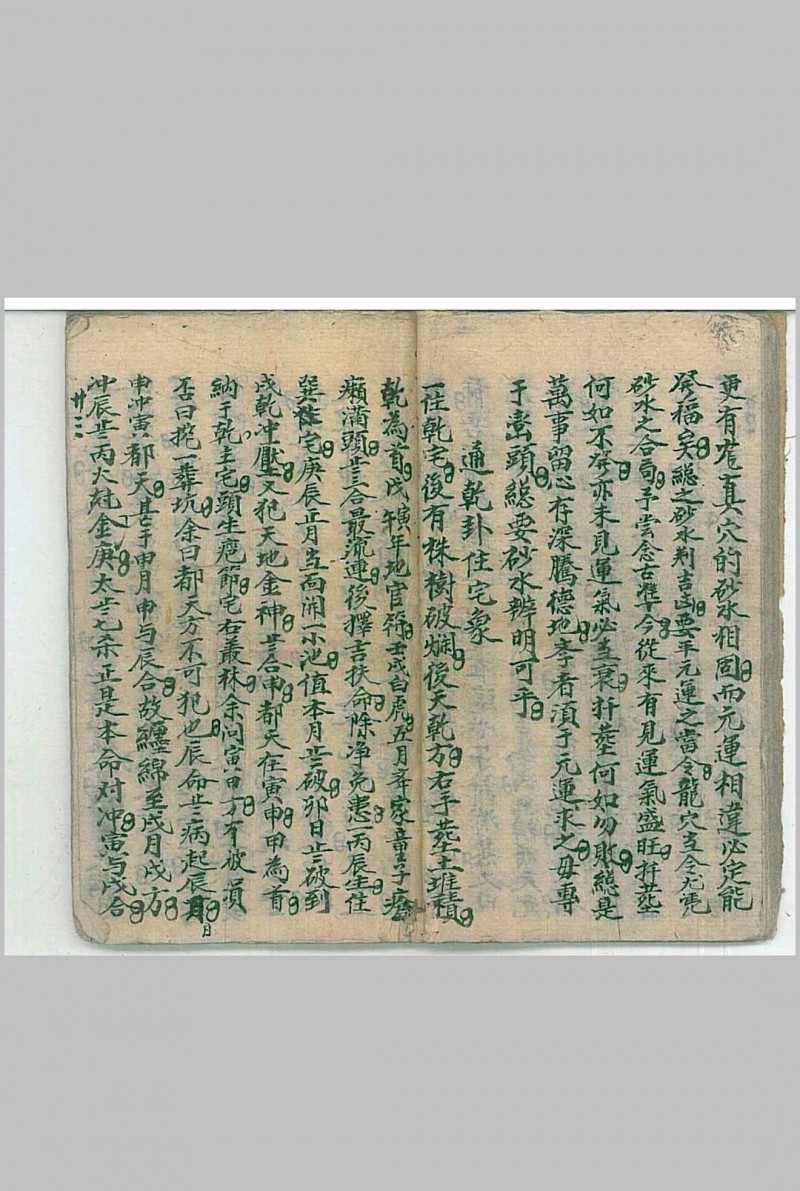 更有龍真穴的砂水相固而元運相違必定能
發福矣總之砂水判吉凶要乎元運之當令龍穴支令尤憑
砂水之合局予嘗念古準今從來有見運氣盛旺扦塟
何如不發亦未見運氣必衰扦塟何如勿敗總是
萬事留心存深騰德地李者須于元運求之毋專
于巒頭總要砂水辨明可乎
通乾卦住宅象
一住乾宅後有株樹破爛後天乾方右手塟土堆積
乾為首戊寅年地官符壬戌白虎五月李家童子瘡
癩滿頭三合最流連後擇吉扶命除净免患一丙辰生住
巽宅庚辰正月当面開一小池值本月破卯日破到
戌乾冲壓又犯天地金神合申都天在寅申甲為首
納于乾主宅頭生疤節宅右叢林余问寅甲方有被損
否曰挖一葬坑余曰都天方不可犯也辰命病起辰月日
申冲寅都天甚于申月申与辰合故纏綿至戌月戌方
冲辰丙火尅金庚太七杀正是本命对冲寅与戌合
廿三